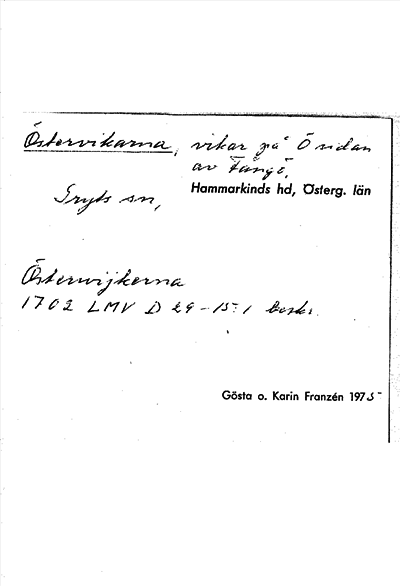 Östervikarna, vikar på Ö sidan
av Fångö.
Gryts sn, Hammarkinds hd, Österg. län
Österwijkerna
1702 LMV D 29-15:1 beskr.
Gösta o. Karin Franzén 1975